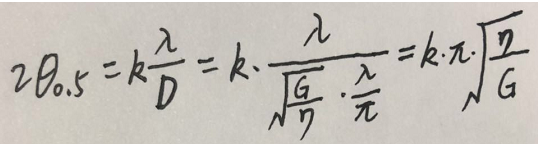 2θ₀.₅ = k λ/D = k · λ/(√(G/η) · λ/π) = k · π · √(η/G)